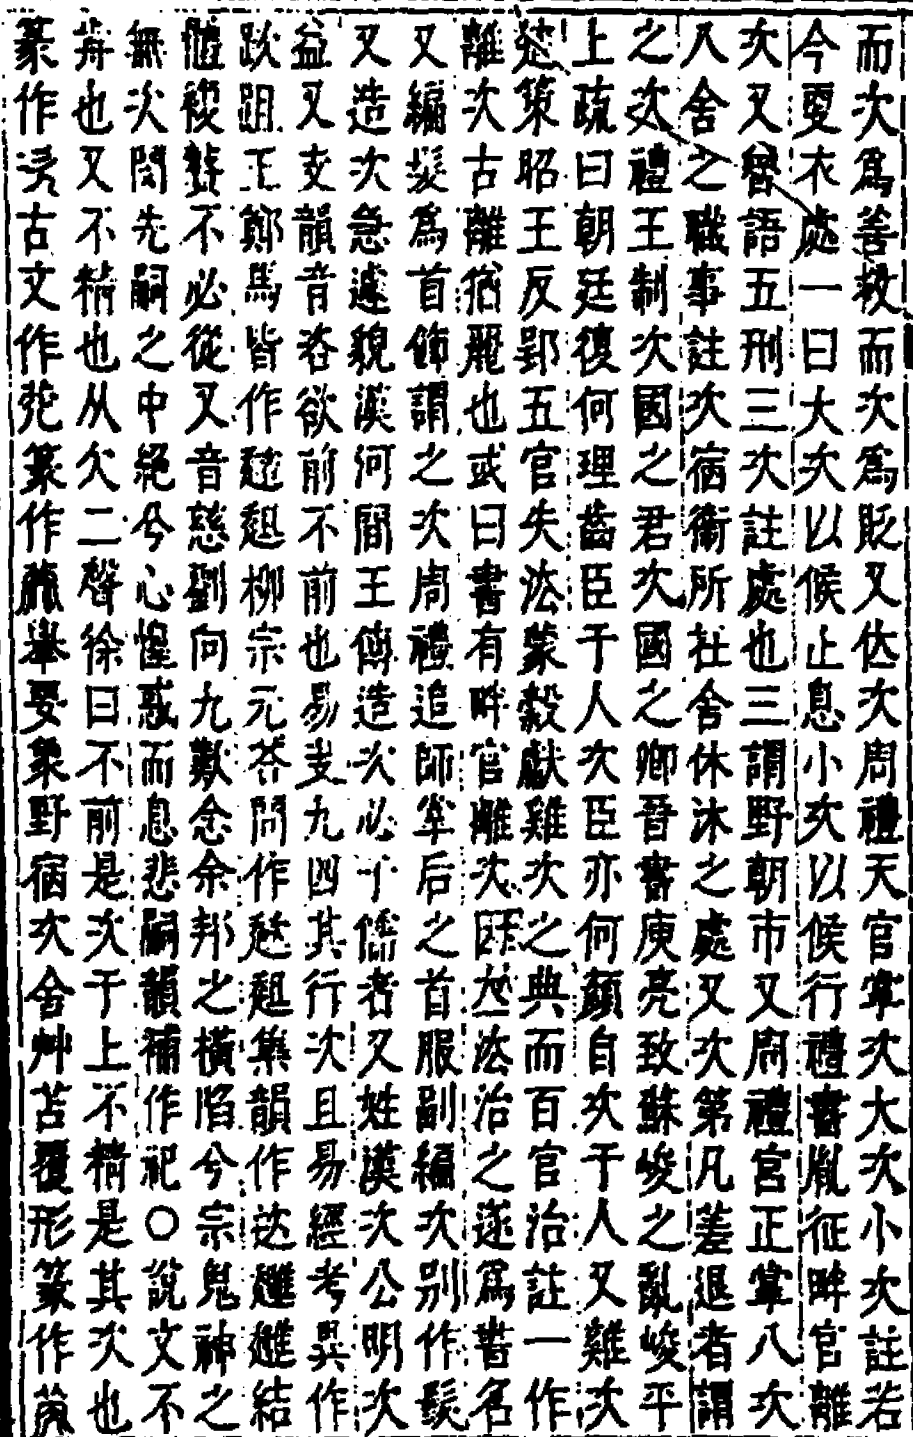 而次爲善救而次爲貶又佽次周禮天官掌次大次小次註若
今更衣處一曰大次以候止息小次以候行禮書胤征畔官離
次又魯語五刑三次註處也三謂野朝市又周禮宮正掌八次
八舍之職事註次宿衞所在舍休沐之處又次第凡差退者謂
之次禮王制次國之君次國之卿晉書庾亮致蘇峻之亂峻平
上疏曰朝廷復何理齒臣于人次臣亦何顏自次于人又雞次
楚策昭王反郢五官失法蒙穀獻雞次之典而百官治註一作
離次古離猶麗也或曰書有畔官離次因在法治之遂爲書名
又編髮爲首飾謂之次周禮追師掌后之首服副編次別作髲
又造次急遽貌漢河閒王傳造次必于儒者又姓漢次公明次
益又支韻音咨欲前不前也易夬九四其行次且易經考異作
趑趄王鄭馬皆作趑趄柳宗元荅問作趑趄集韻作趑趡趡結
體複贅不必從又音慈劉向九歎念余邦之橫陷兮宗鬼神之
無次閔先嗣之中絕兮心惶惑而息悲嗣韻補作祀○說文不
葬也又不精也从欠二聲徐曰不前是次于上不精是其次也
篆作古文作篆作舉要象野宿次舍艸苫覆形篆作